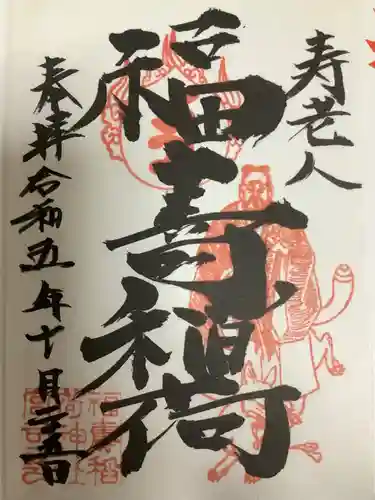 寿老人
福寿稲荷
奉拝 令和五年十月二十五日